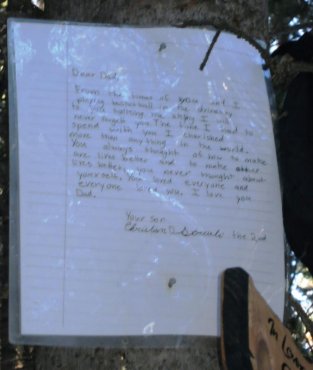 Dear Dad,
From the times of you and I
playing basketball in the driveway
to you calling me skippy I will
never forget you. The time I had to
spend with you I cherished
more than anything in the world.
You always thought of how to make
are live better and to make other
lives better, you never thought about
yourself. You loved everyone and
everyone loved you. I love you
Dad.
Your son
the 2nd
In Lov